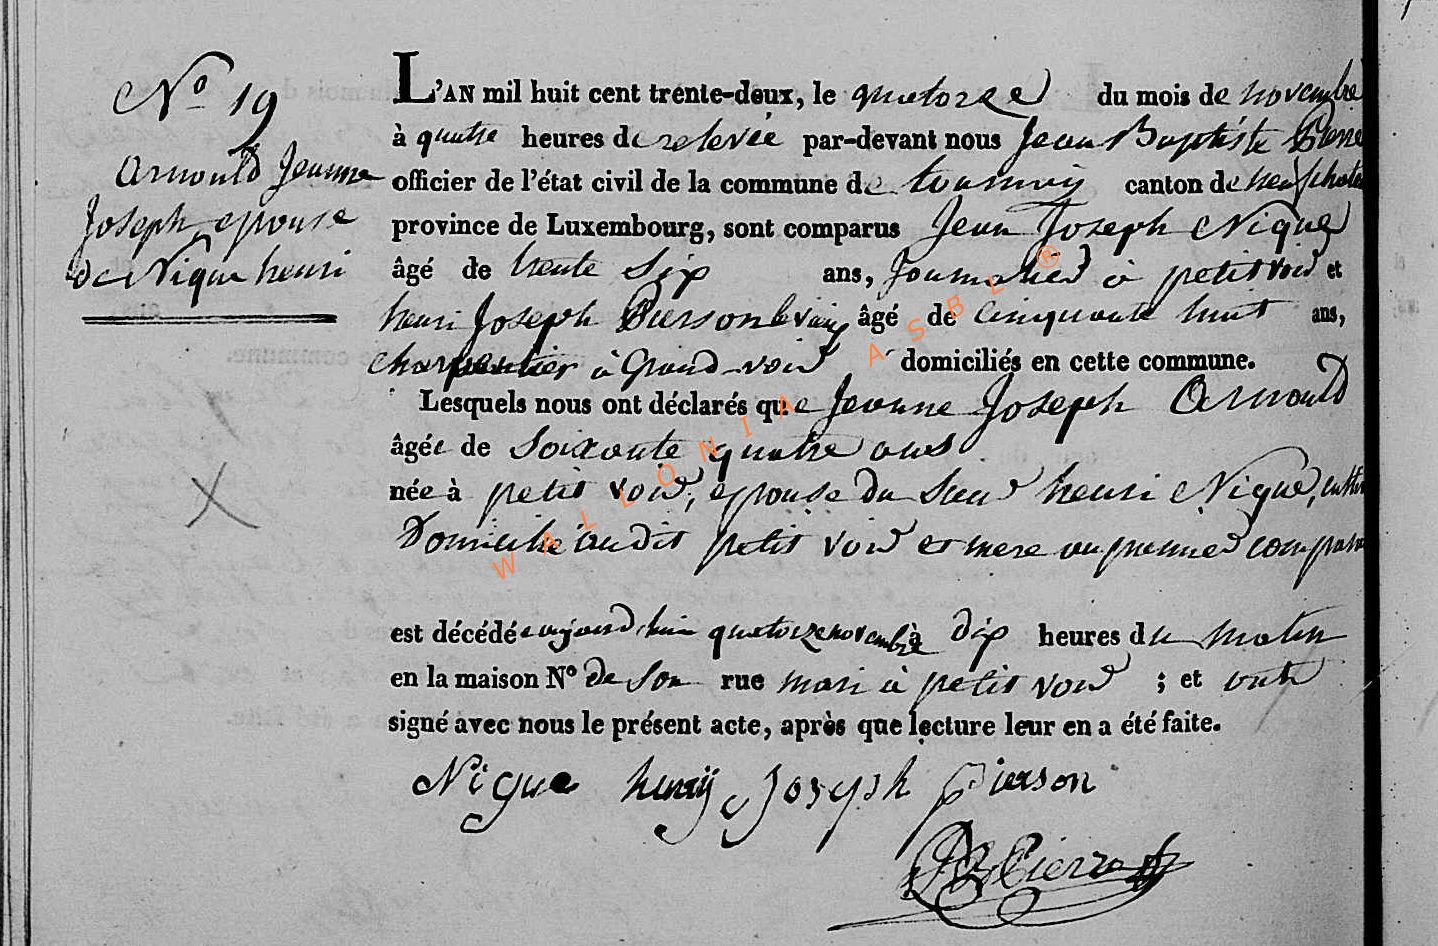 N° 19
Arnould Jeanne
Joseph epouse
de Nique henri
L'AN mil huit cent trente-deux, le quatorze du mois de novembre
à quatre heures de relevée par-devant nous Jean Baptiste Pierre
officier de l'état civil de la commune de tournay canton de neufchate
province de Luxembourg, sont comparus Jean Joseph Nique
âgé de trente six ans, Journalier à petit voir et
henri Joseph Pierson âgé de Cinquante huit ans,
charpentier à Grand-voir domiciliés en cette commune.
Lesquels nous ont déclarés que Jeanne Joseph Arnould
âgée de Soixante quatre ans
née à petit voir, epouse du Sieur henri Nique,
Domicilié audit petit voir et mere au premier compara
est décédée aujourd'hui quatorze novembre à dix heures du matin
en la maison N° de son rue mari à petit voir ; et ont
signé avec nous le présent acte, après que lecture leur en a été faite.
Nique henrij Joseph pierson
JB Pierre
WALLONIA ASBL ®